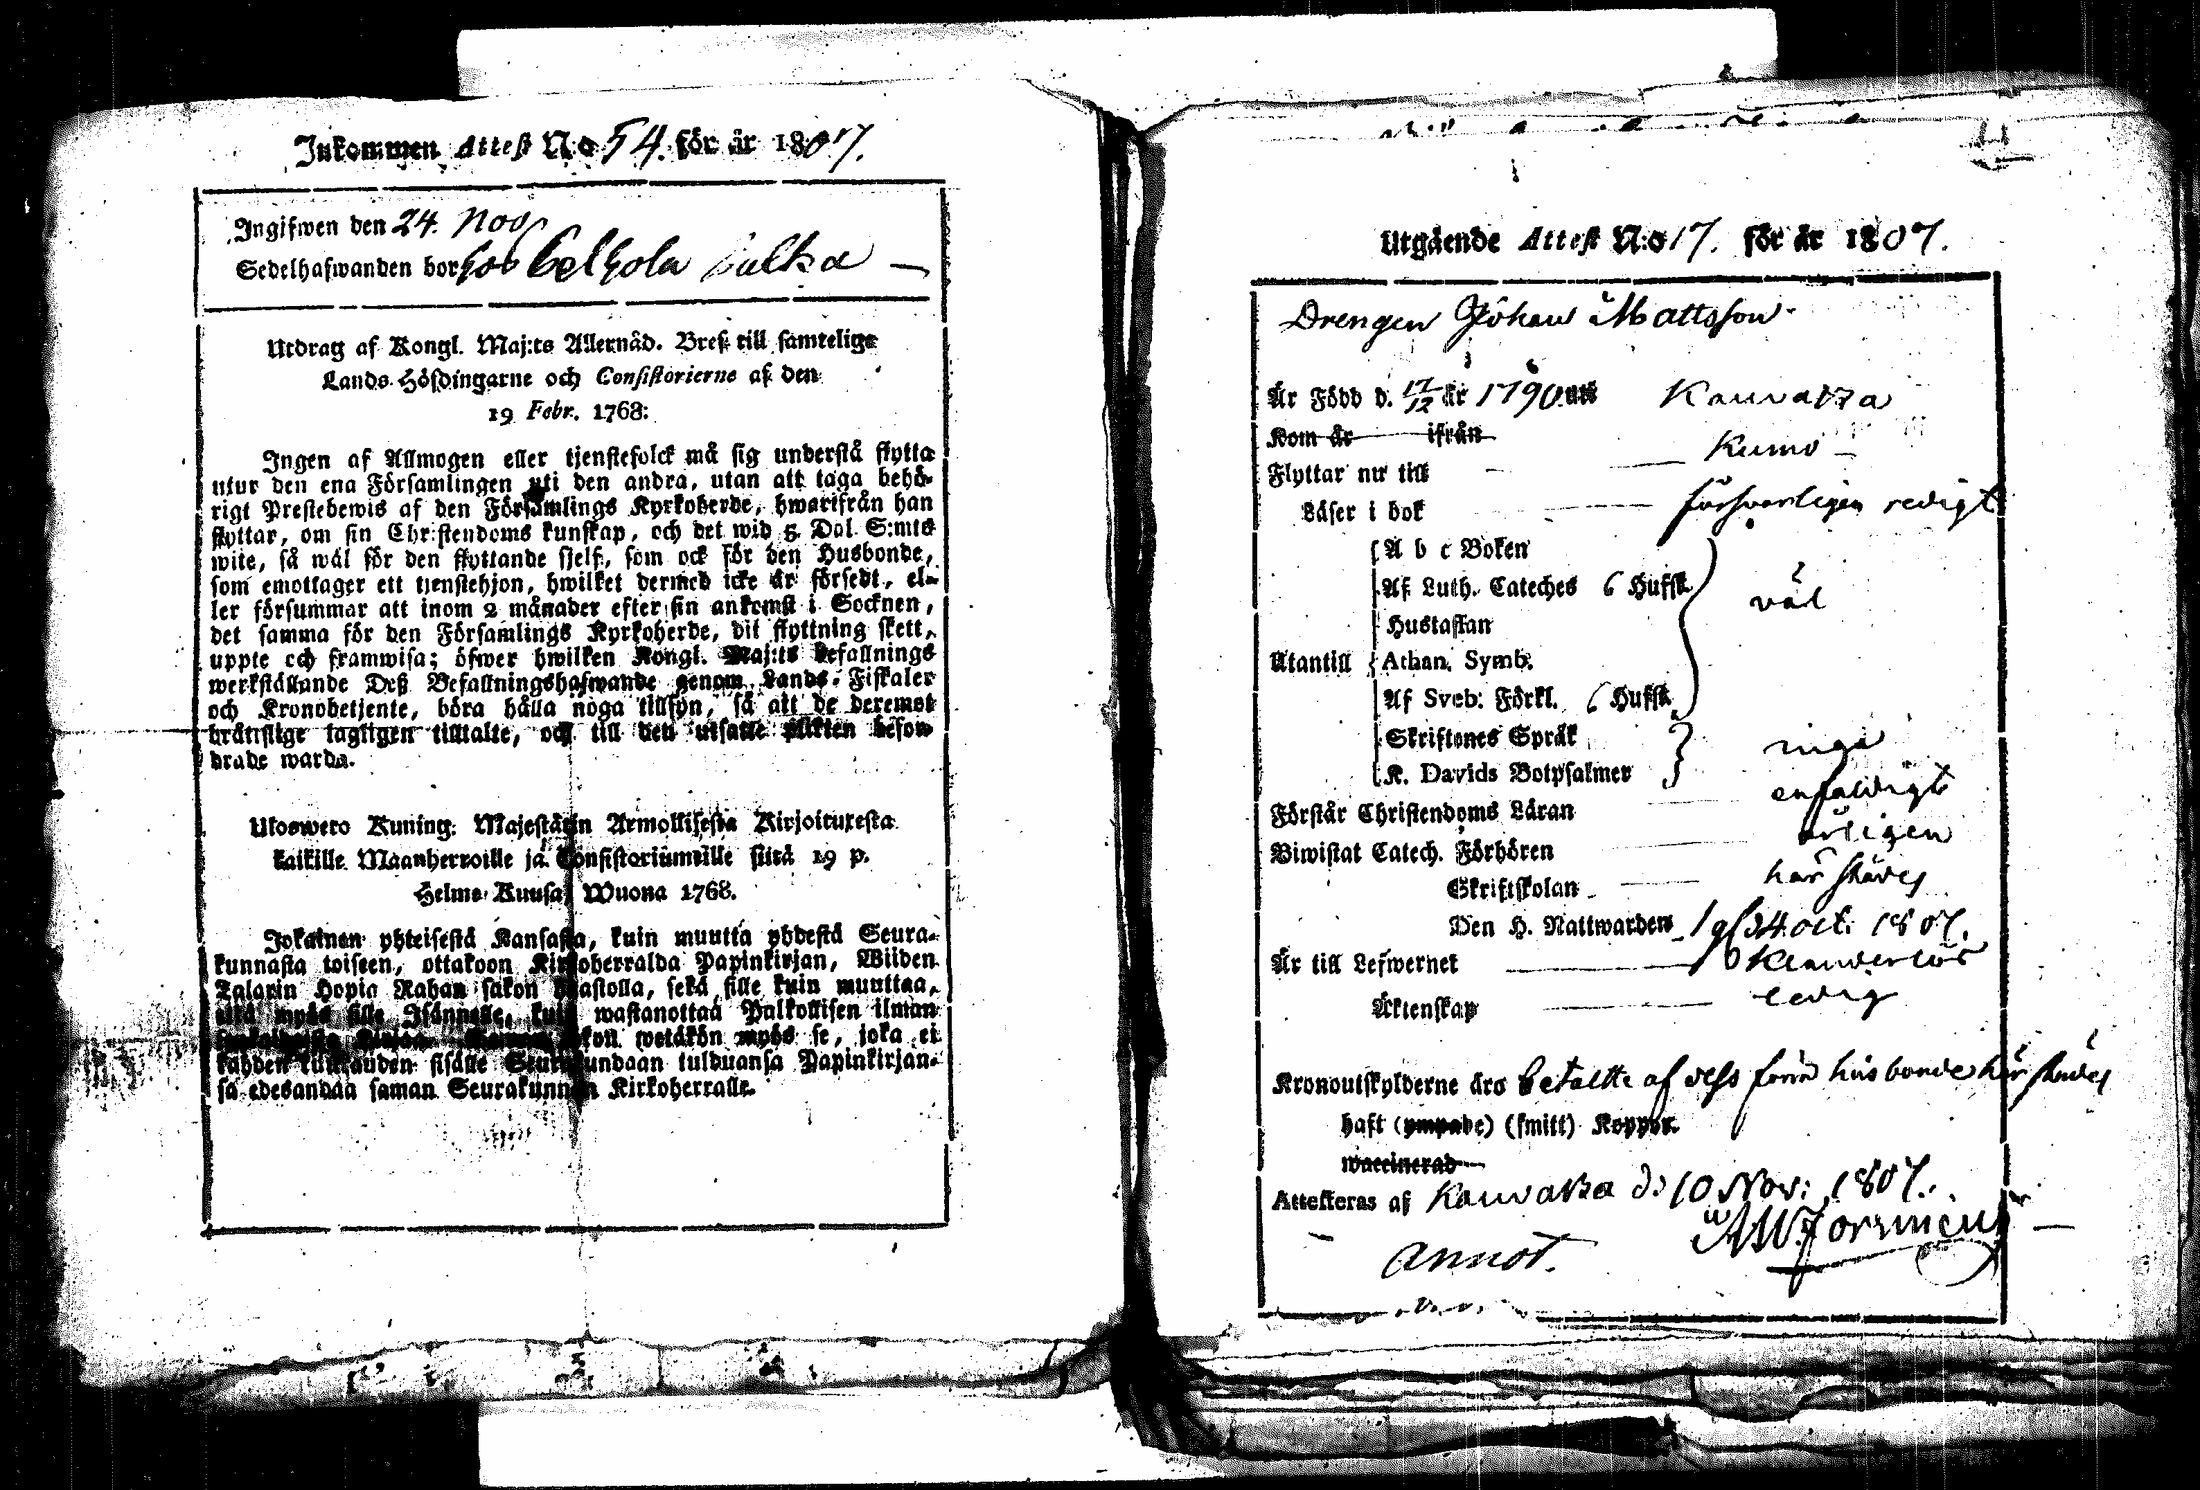 Inkommen Attest No 54. för år 1807.
Ingifwen den 24. Nov
Sedelhafwanden bor hos
Utdrag af Kongl. Maj:ts Allernåd. Bref till samtelige
Lands-Höfdingarne och Consistorierne af den
19 Febr. 1768:
Ingen af Allmogen eller tjenstefolck må sig understå flytta
utur den ena Församlingen uti den andra, utan att taga behö-
rigt Prestebewis af den Församlings Kyrkoherde, hwarifrån han
flyttar, om sin Christendoms kunskap, och det wid 5 Dal. S:mts
wite, så wäl för den flyttande sjelf, som ock för den Husbonde,
som emottager ett tjenstehjon, hwilket dermed icke är försedt, el-
ler försummar att inom 2 månader efter sin ankomst i Socknen,
det samma för den Församlings Kyrkoherde, dit flyttning skett,
uppte och framwisa; öfwer hwilken Kongl. Maj:ts befallnings
werkställande Deß Befallningshafwande genom Lands-Fiskaler
och Kronobetjente, böra hålla noga tillsyn, så att de deremot
brätslige lagligen tilltalte, och till det utsatte plikten befor-
drade warda.
Ulosweto Kuning. Majestätin Armollisesta Kirjoituxesta
kaikille Maanherroille ja Consistoriumeille siitä 19 p.
Helme-Kuusa Wuona 1768.
Jokainen yhteisestä Kansasta, kuin muutta yhdestä Seura-
kunnasta toiseen, ottakoon Kirkoherralda Papinkirjan, Wiiden
Talarin Hopia Rahan sakon haastolla, sekä sille kuin muuttaa,
että myös sille Isännelle, kuin wastanottaa Palkollisen ilman
sakon wetäkön myös se, joka ei
kahden kuukauden sisälle Seurakundaan tulduansa Papinkirjan-
sa edesandaa saman Seurakunnan Kirkoherralle.
Utgående Attest N:o 17. för år 1807.
Drengen Johan Mattsson
Är Född d. 17/12 år 1790 uti Kauvatza
Kom år ifrån
Flyttar nu till Kumo
Läser i bok försvarligen redigt
A b c Boken
Af Luth. Cateches 6 Hufst. väl
Hustaflan
Utantill Athan. Symb.
Af Sveb. Förkl. 6 Hufst.
Skriftenes Språk
K. Davids Botpsalmer inga
Förstår Christendoms Läran enfaldigt
Biwistat Catech. Förhören årligen
Skriftskolan här städes
Den H. Nattwarden 1 g/ 24 oct. 1807.
Är till Lefwernet klanderlös
Äktenskap ledig
Kronoutskylderne äro betalte af dess förra husbonde här städes
haft (ympade) (smitt) Koppor.
waccinerad
Attesteras af Kauvatza d. 10 Nov: 1807.
annot.